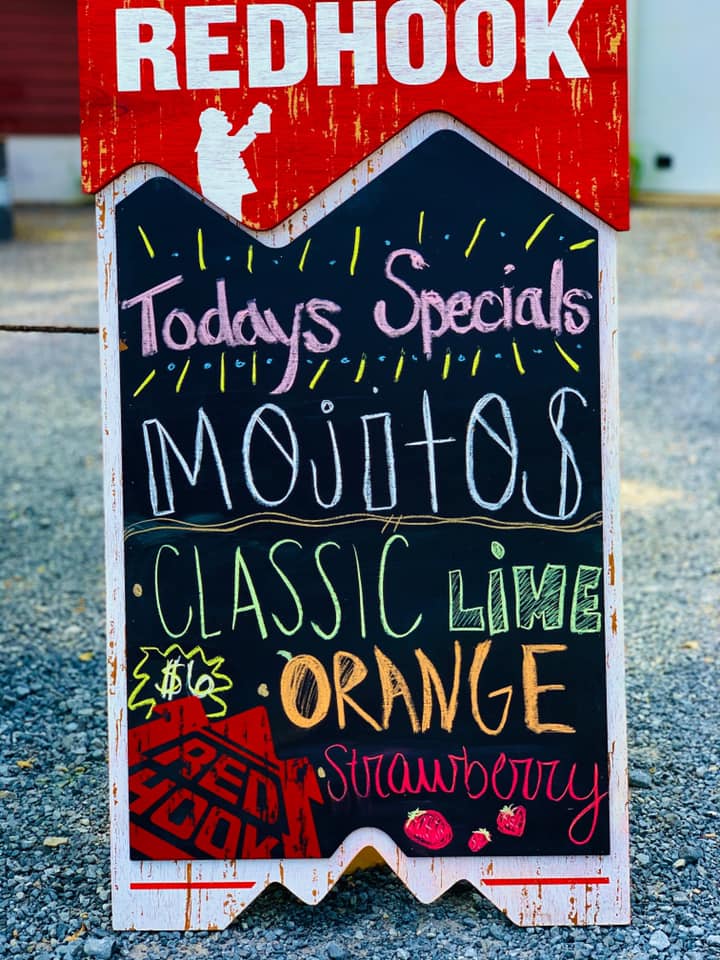 REDHOOK
Todays Specials
MOJITOS
CLASSIC LIME
$6
ORANGE
Strawberry
RED
HOOK